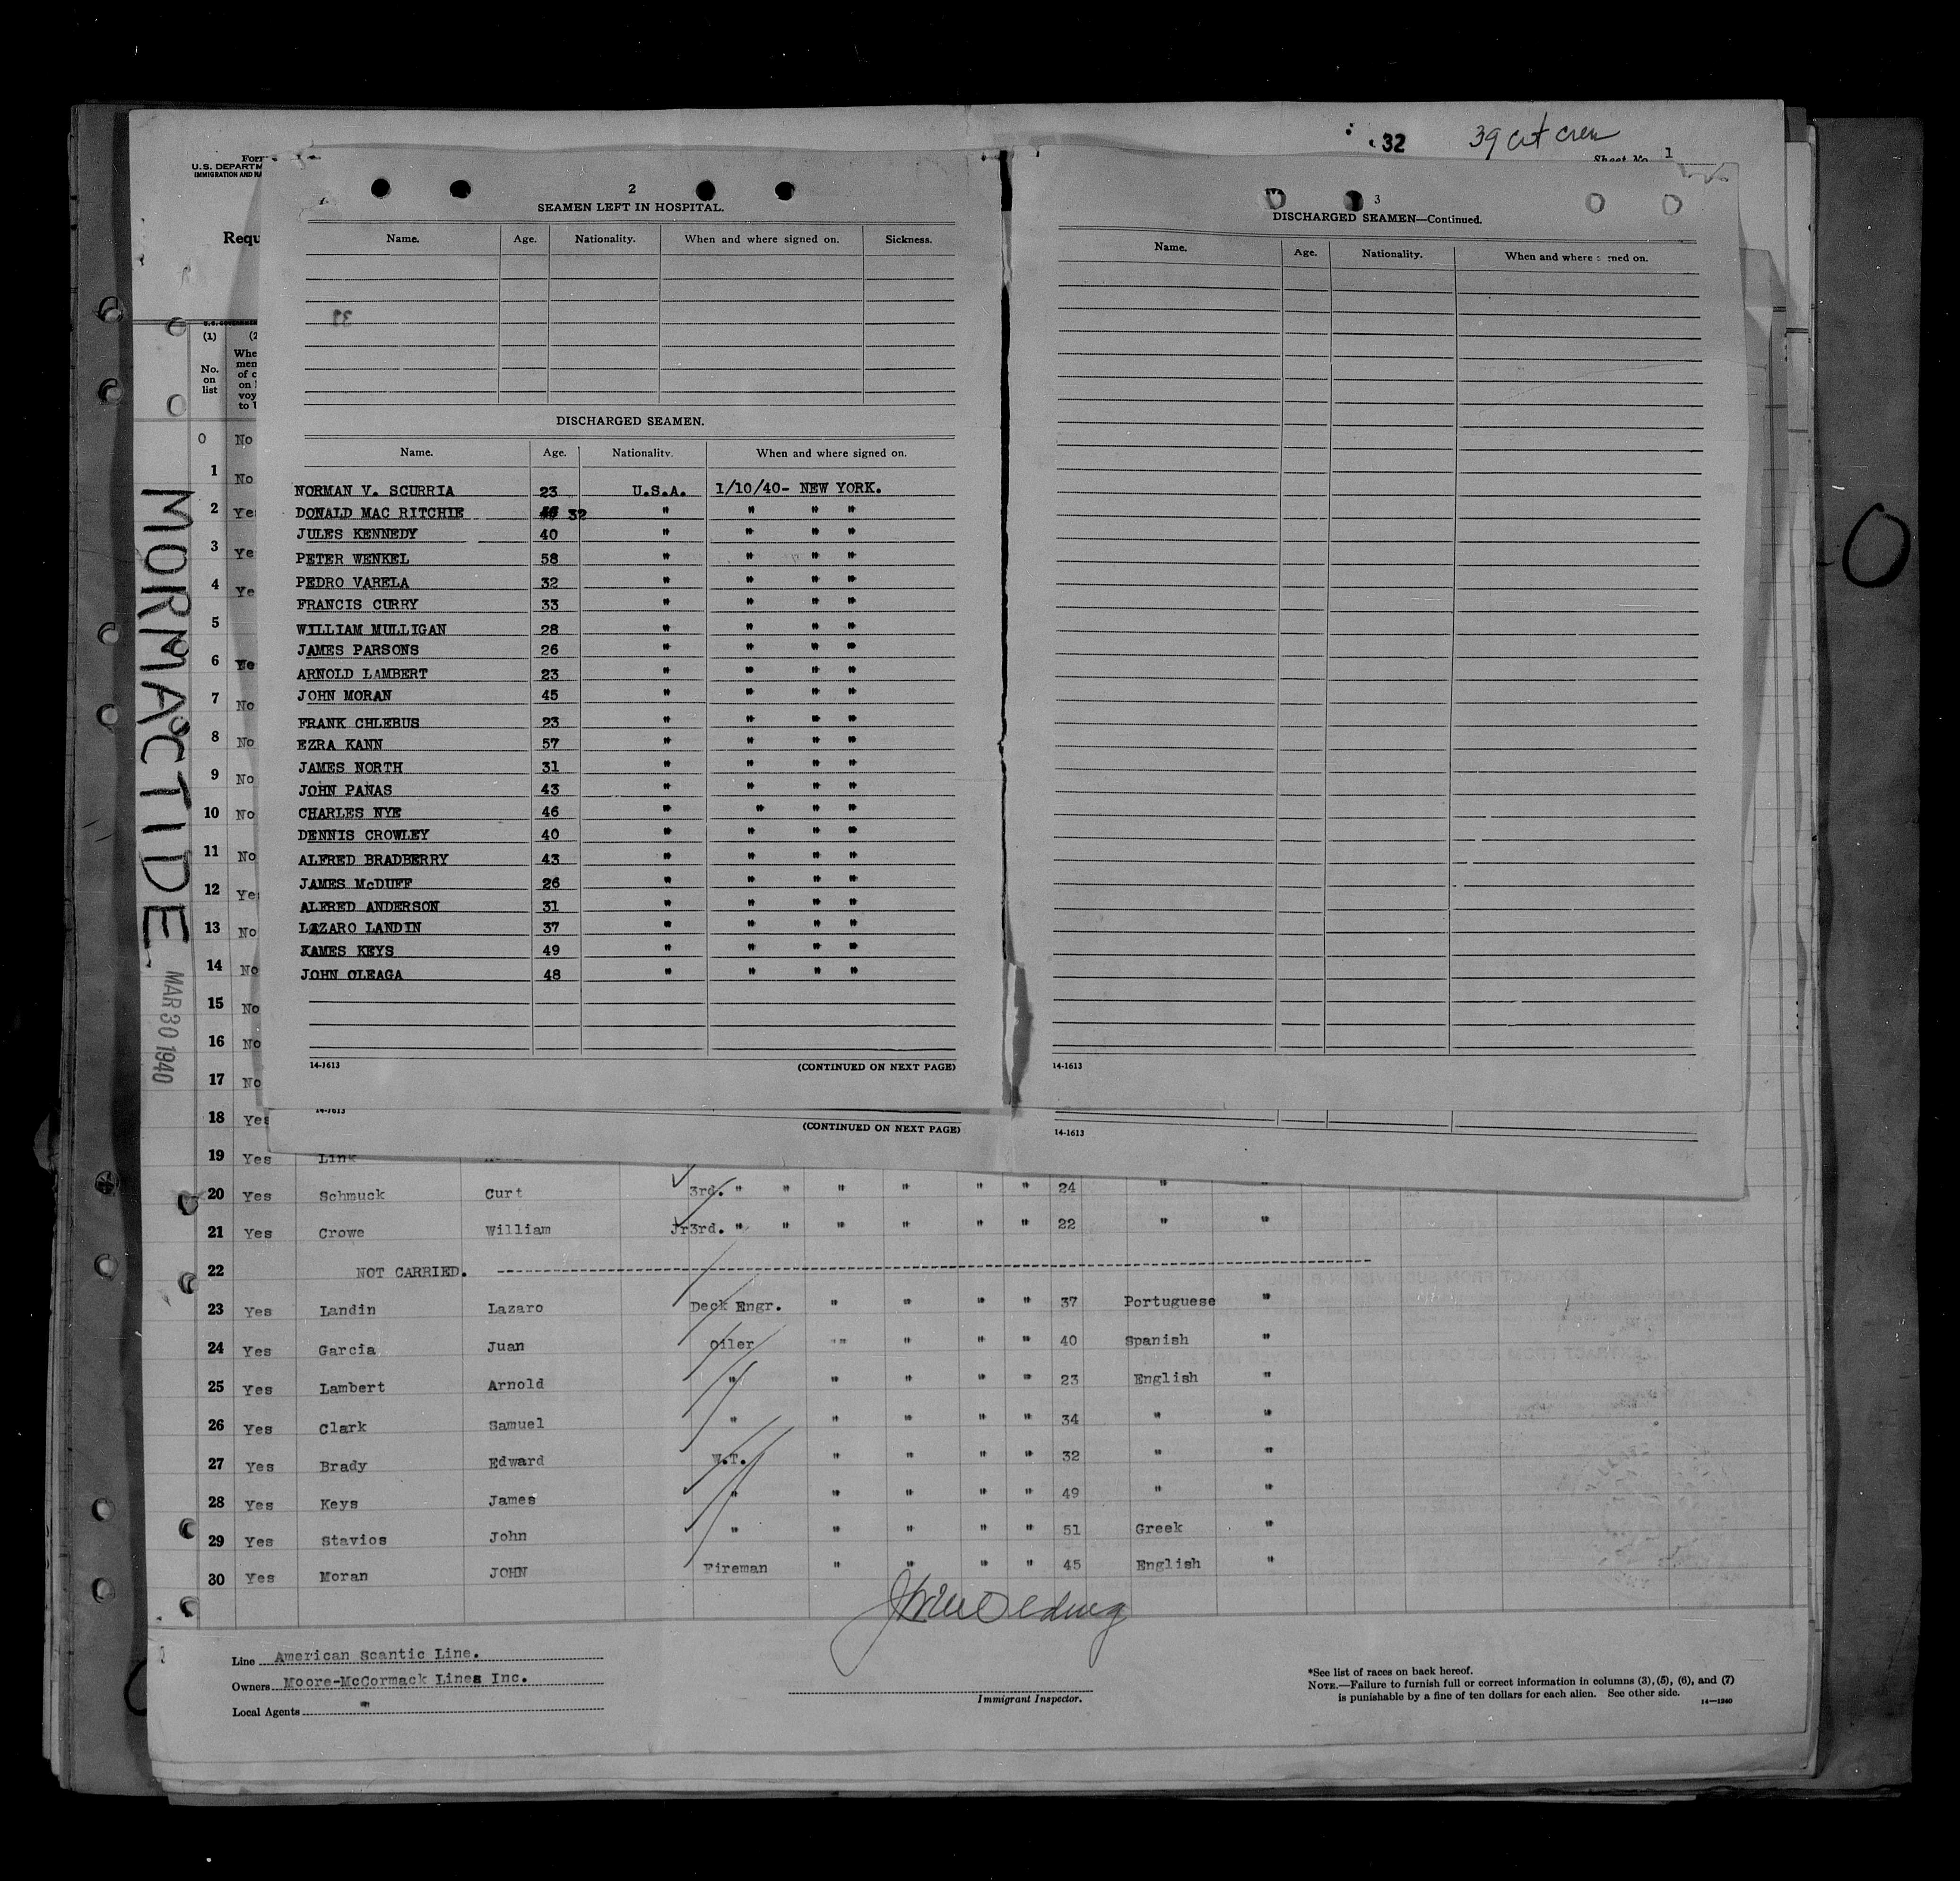 32 39 cit crew
Form
U.S. DEPARTM
IMMIGRATION AND NA
Sheet No. 1
Requ
2
SEAMEN LEFT IN HOSPITAL.
Name. Age. Nationality. When and where signed on. Sickness.
DISCHARGED SEAMEN.
Name. Age. Nationality. When and where signed on.
NORMAN V. SCURRIA 23 U.S.A. 1/10/40- NEW YORK.
DONALD MAC RITCHIE 32 " " " "
JULES KENNEDY 40 " " " "
PETER WENKEL 58 " " " "
PEDRO VARELA 32 " " " "
FRANCIS CURRY 33 " " " "
WILLIAM MULLIGAN 28 " " " "
JAMES PARSONS 26 " " " "
ARNOLD LAMBERT 23 " " " "
JOHN MORAN 45 " " " "
FRANK CHLEBUS 23 " " " "
EZRA KANN 57 " " " "
JAMES NORTH 31 " " " "
JOHN PANAS 43 " " " "
CHARLES NYE 46 " " " "
DENNIS CROWLEY 40 " " " "
ALFRED BRADBERRY 43 " " " "
JAMES McDUFF 26 " " " "
ALFRED ANDERSON 31 " " " "
LAZARO LANDIN 37 " " " "
JAMES KEYS 49 " " " "
JOHN OLEAGA 48 " " " "
14-1613 (CONTINUED ON NEXT PAGE)
3
DISCHARGED SEAMEN—Continued.
Name. Age. Nationality. When and where signed on.
14-1613
14-1613
(CONTINUED ON NEXT PAGE)
14-1613
MORMACTIDE.
MAR 30 1940
(1) (2
No. on list
Whe
mem
of c
on l
voy
to U
0 No
1 No
2 Yes
3 Ye
4 Ye
5
6 Ye
7 No
8 No
9 No
10 No
11 No
12 Yes
13 No
14 No
15 No
16 No
17 No
18 Yes
19 Yes Link
20 Yes Schmuck Curt 3rd. " " " " " " 24 " "
21 Yes Crowe William Jr3rd. " " " " " " 22 " "
22 NOT CARRIED. --------
23 Yes Landin Lazaro Deck Engr. " " " " 37 Portuguese "
24 Yes Garcia Juan Oiler "" " " " 40 Spanish "
25 Yes Lambert Arnold " " " " " 23 English "
26 Yes Clark Samuel " " " " " 34 " "
27 Yes Brady Edward W.T. " " " " 32 " "
28 Yes Keys James " " " " " 49 " "
29 Yes Stavios John " " " " " 51 Greek "
30 Yes Moran JOHN Fireman " " " " 45 English "
Line American Scantic Line.
Owners Moore-McCormack Lines Inc.
Local Agents "
Immigrant Inspector.
*See list of races on back hereof.
NOTE.—Failure to furnish full or correct information in columns (3), (5), (6), and (7)
is punishable by a fine of ten dollars for each alien. See other side.
14—1240